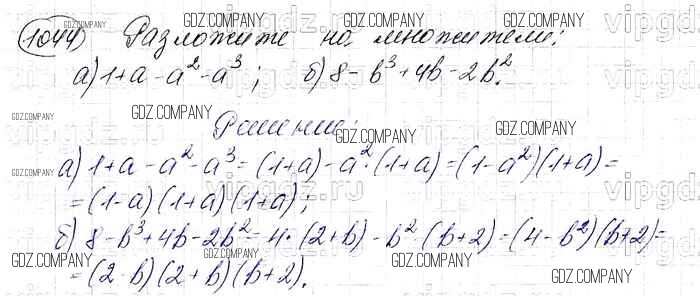 1044 Разложите на множители:
а) 1+a-a²-a³; б) 8-b³+4b-2b².
Решение:
а) 1+a-a²-a³=(1+a)-a²·(1+a)=(1-a²)(1+a)=
=(1-a)(1+a)(1+a);
б) 8-b³+4b-2b²=4·(2+b)-b²·(b+2)=(4-b²)(b+2)=
=(2-b)(2+b)(b+2).
GDZ.COMPANY
GDZ.COMPANY
GDZ.COMPANY
GDZ.COMPANY
GDZ.COMPANY
GDZ.COMPANY
GDZ.COMPANY
GDZ.COMPANY
GDZ.COMPANY
GDZ.COMPANY
GDZ.COMPANY
GDZ.COMPANY
GDZ.COMPANY
GDZ.COMPANY